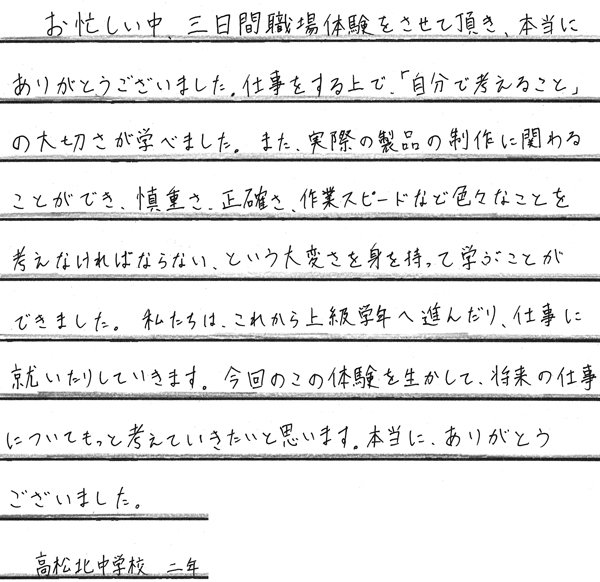 お忙しい中、三日間職場体験をさせて頂き、本当に
ありがとうございました。仕事をする上で、「自分で考えること」
の大切さが学べました。また、実際の製品の制作に関わる
ことができ、慎重さ、正確さ、作業スピードなど色々なことを
考えなければならない、という大変さを身を持って学ぶことが
できました。私たちは、これから上級学年へ進んだり、仕事に
就いたりしていきます。今回のこの体験を生かして、将来の仕事
についてもっと考えていきたいと思います。本当に、ありがとう
ございました。
高松北中学校 二年